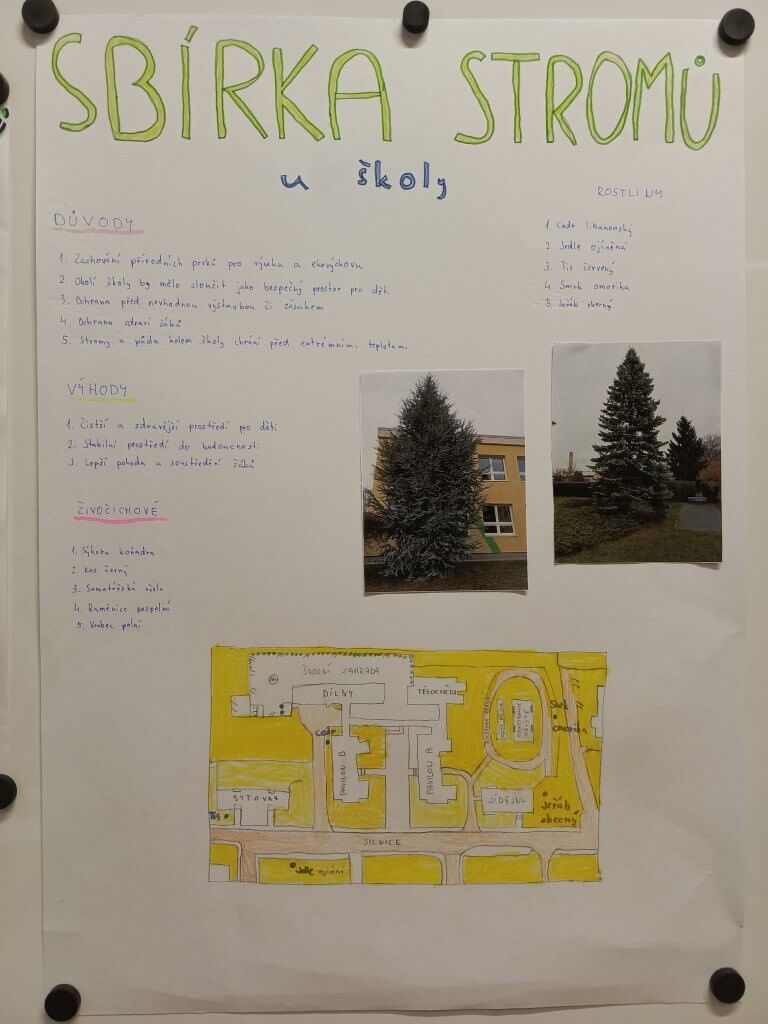 SBÍRKA STROMŮ
u školy
DŮVODY
1. Zachování přírodních prvků pro výuku a ekovýchovu
2. Okolí školy by mělo sloužit jako bezpečný prostor pro děti
3. Ochrana před nevhodnou výstavbou či zásahem
4. Ochrana zdraví žáků
5. Stromy a půda kolem školy chrání před extrémními teplotami
ROSTLINY
1. Cedr libanonský
2. Jedle ojíněná
3. Tis červený
4. Smrk omorika
5. Jeřáb obecný
VÝHODY
1. Čistší a zdravější prostředí pro děti
2. Stabilní prostředí do budoucnosti
3. Lepší pohoda a soustředění žáků
ŽIVOČICHOVÉ
1. Sýkora koňadra
2. Kos černý
3. Samotářská včela
4. Ruměnice pospolná
5. Vrabec polní
ŠKOLNÍ ZAHRADA
DÍLNY
TĚLOCVIČNA
Cedr
PAVILON B
PAVILON A
Smrk
omorika
BYTOVKA
JÍDELNA
Jeřáb
obecný
Tis
SILNICE
Jedle ojíněná